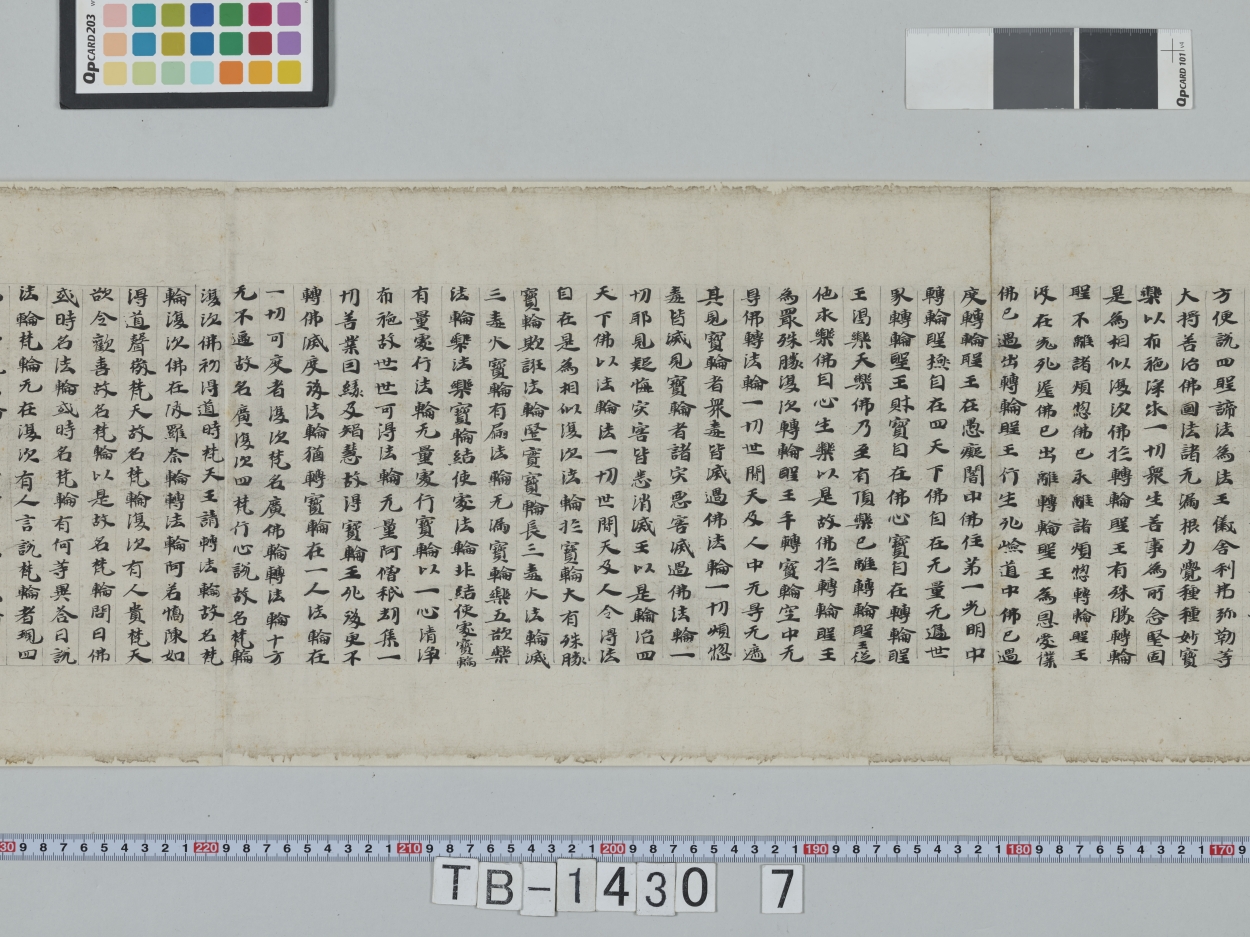 方便説四聖諦法為法王儀舎利弗弥勒等
大将善治佛國法諸无漏根力覺種種妙寶
樂以布施深求一切衆生善事為所念堅固
是為相似復次佛於轉輪聖王有殊勝轉輪
聖不離諸煩惱佛已永離諸煩惱轉輪聖王
没在老死渥佛已出離轉輪聖王為恩愛僕
佛已過出轉輪聖王行生死嶮道中佛已過
度轉輪聖王在愚癡闇中佛住第一光明中
轉輪聖㧾自在四天下佛自在无量无邊世
界轉輪聖王財寶自在佛心寶自在轉輪聖
王渇樂天樂佛乃至有頂樂已離轉輪聖王從
他求樂佛自心生樂以是故佛於轉輪聖王
為冣殊勝復次轉輪聖王手轉寶輪空中无
㝵佛轉法輪一切世間天及人中无㝵无遮
其見寶輪者衆毒皆滅遇佛法輪一切煩惱
毒皆滅見寶輪者諸灾惡害滅遇佛法輪一
切耶見疑悔灾害皆悉消滅王以是輪治四
天下佛以法輪法一切世間天及人令得法
自在是為相似復次法輪於寶輪大有殊勝
寶輪欺誑法輪堅實寶輪長三毒火法輪滅
三毒火寶輪有漏法輪无漏寶輪樂五欲樂
法輪樂法樂寶輪結使處法輪非結使處寶輪
有量處行法輪无量處行寶輪以一心清淨
布施故世世可得法輪无量阿僧秖劫集一
切善業因緣及智慧故得寶輪王死後更不
轉佛滅度後法輪猶轉寶輪在一人法輪在
一切可度者復次梵名廣佛輪轉法輪十方
无不遍故名廣復次四梵行心説故名梵輪
復次佛初得道時梵天王請轉法輪故名梵
輪復次佛在波羅奈輪轉法輪阿若憍陳如
得道聲徹梵天故名梵輪復次有人貴梵天
欲令歡喜故名梵輪以是故名梵輪問曰佛
或時名法輪或時名梵輪有何等異荅曰説
法輪梵輪无在復次有人言説梵輪者現四
QpCARD 203
QpCARD 101 v4
30 9 8 7 6 5 4 3 2 1 220 9 8 7 6 5 4 3 2 1 210 9 8 7 6 5 4 3 2 1 200 9 8 7 6 5 4 3 2 1 190 9 8 7 6 5 4 3 2 1 180 9 8 7 6 5 4 3 2 1 170 9
TB-1430 7